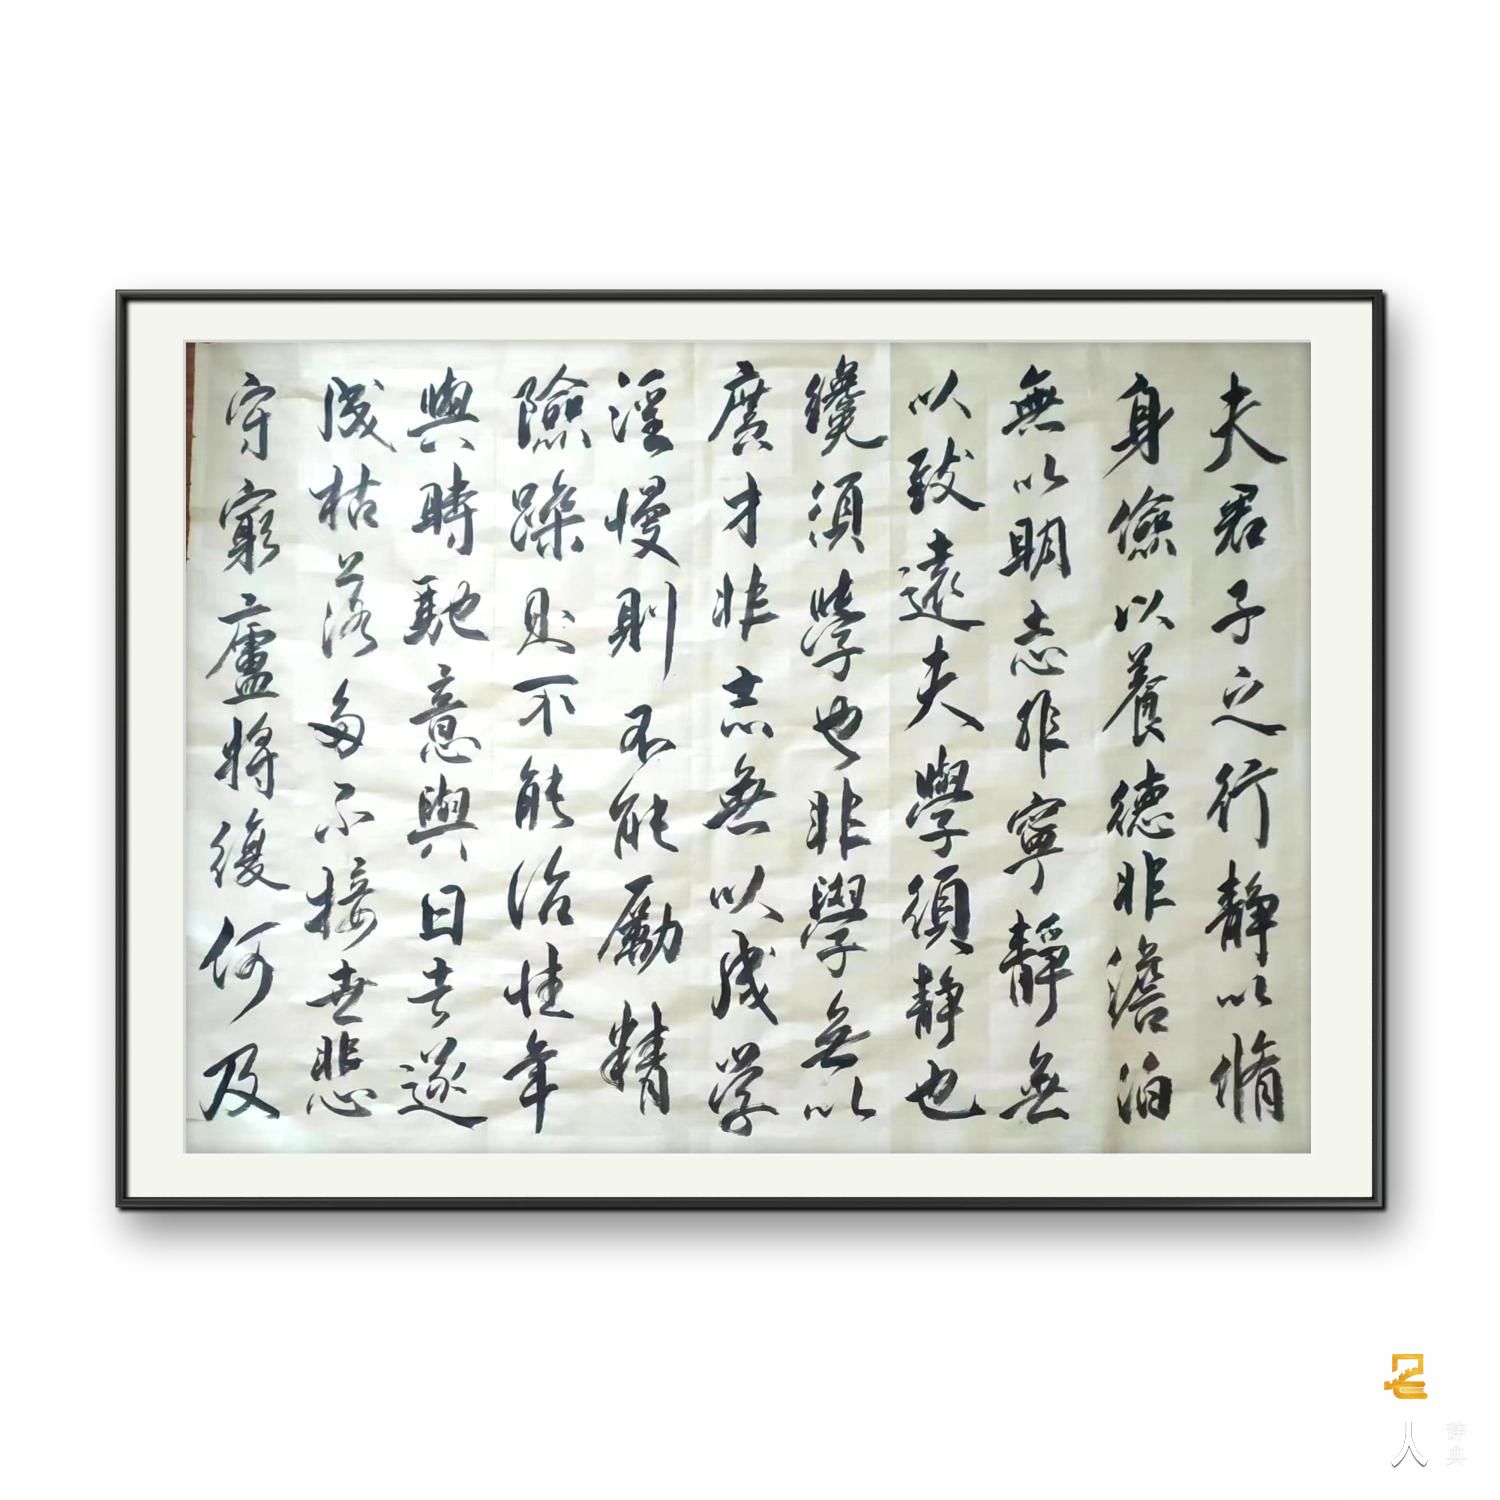 夫君子之行静以脩
身儉以養德非澹泊
無以明志非寧靜無
以致遠夫學須静也
纔須學也非學無以
廣才非志無以成学
淫慢則不能勵精
險躁則不能治性年
與時馳意與日去遂
成枯落多不接世悲
守窮廬將復何及
名人辞典